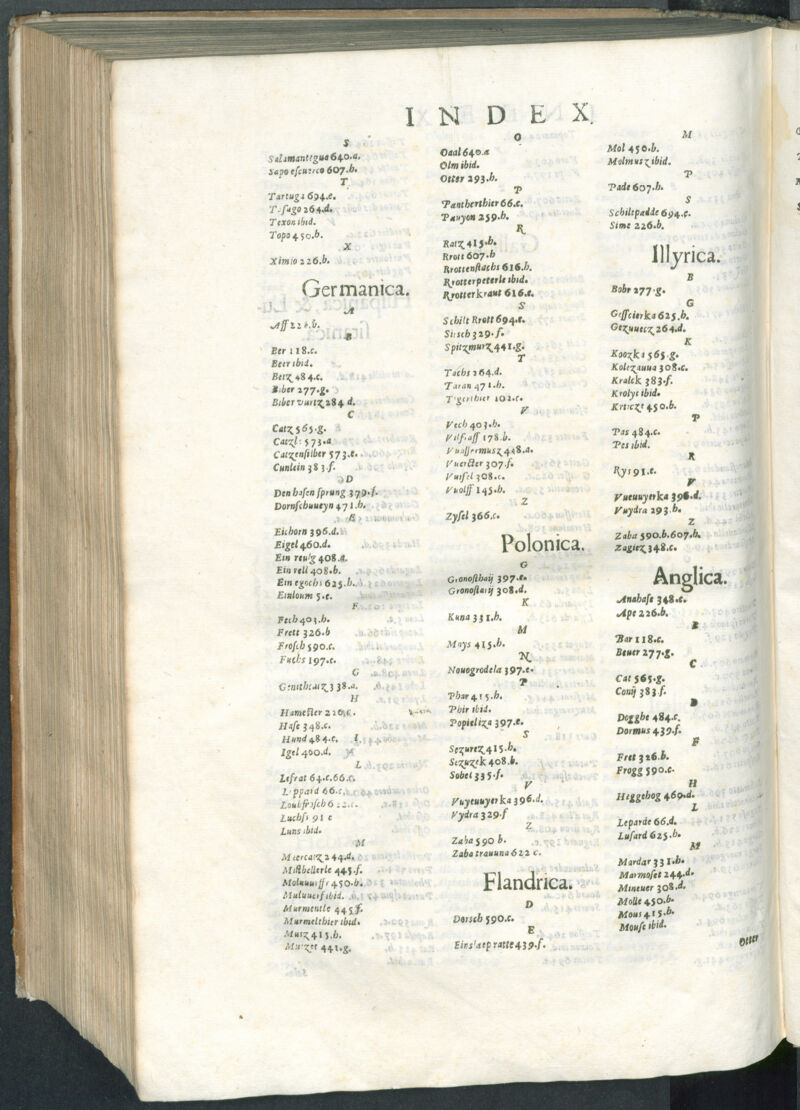 INDEX
S
Salamantegua 640.a.
Sapo escuerco 607.b.
T
Tartuga 694.e.
Tasugo 264.d.
Texon ibid.
Topo 450.b.
X
Ximio 226.b.
Germanica.
A
Aff 226.b.
B
Ber 118.c.
Beer ibid.
Betz 484.c.
Biber 277.g.
Biber vurtz 284 d.
C
Catz 565.g.
Catzl: 573.a
Catzensilber 573.e.
Cunlein 383.f.
D
Den hasen sprung 379.f.
Dornschuueyn 471.b.
E
Eichorn 396.d.
Eigel 460.d.
Ein reulg 408.a.
Ein rell 408.b.
Ein egochs 625.b.
Einloum 5.e.
F
Fech 403.b.
Frett 326.b
Frosch 590.c.
Fuchs 197.c.
G
338.a.
H
Hamester
Hase 348.c.
Hund 484.c.
I
Igel 460.d.
L
Lefrat 64.c.66.c.
Leppard 66.c.
Loubfrosch
Luchss 91 e
Luns ibid.
M
Meercatz 244.d.
Mistbellerle 445.f.
450.b.
ibid.
Murmentle 445.f.
Murmelthier ibid.
Mutz 415.b.
441.g.
O
Oaal 640.a
Olm ibid.
Otter 293.b.
P
Pantherthier 66.c.
Pauyon 259.b.
R
Ratz 415.b.
Rrott 607.b
Rrottenstachs 616.b.
Rrotterpeterle ibid.
Rrotterkraut 616.e.
S
Schilt Rrott 694.e.
Sitsch 329.f.
Spitzmutz 441.g.
T
Tachs 264.d.
Taran 471.b.
Tigerthier 102.c.
V
Vech 403.b.
178.b.
Vuassermusz 448.a.
Vuercter 307.f.
Vuisel 308.c.
Vuolff 145.b.
Z
Zysel 366.c.
Polonica.
G
Gronosthaij 397.e.
Gronostaiij 308.d.
K
Kuna 331.b.
M
Mays 415.b.
N
Nouogrodela 397.e.
P
Phar 415.b.
Phir ibid.
Popieliza 397.e.
S
Sczurez 415.b.
Sczuzek 408.b.
Sobel 335.f.
V
Vuyeuuyerka 396.d.
Vydra 329.f
Z
Zaba 590 b.
Zaba trauuna 622 c.
Flandrica.
D
Dorsch 590.c.
E
Einslaep ratte 439.f.
M
Mol 450.b.
Molmusz ibid.
P
Pade 607.b.
S
Schiltpadde 694.c.
Sime 226.b.
Illyrica.
B
Bobr 277.g.
G
Gesscierka 625.b.
Gezuuecz 264.d.
K
Koozka 565.g.
Kolczauua 308.c.
Kralck 383.f.
Krolyc ibid.
Krticze 450.b.
P
Pas 484.c.
Pes ibid.
R
Rys 91.e.
V
Vueuuyerka 396.d.
Vuydra 293.b.
Z
Zaba 590.b.607.b.
Zagiez 348.c.
Anglica.
Anahase 348.c.
Ape 226.b.
B
Bar 118.c.
Beuer 277.g.
C
Cat 565.g.
Conij 383.f.
D
Dogghe 484.c.
Dormus 439.f.
F
Fret 326.b.
Frogg 590.c.
H
Heggehog 469.d.
L
Leparde 66.d.
Lusard 625.b.
M
Mardar 331.b.
Marmoset 244.d.
Mineuer 308.d.
Molle 450.b.
Mous 415.b.
Mouse ibid.
Otter